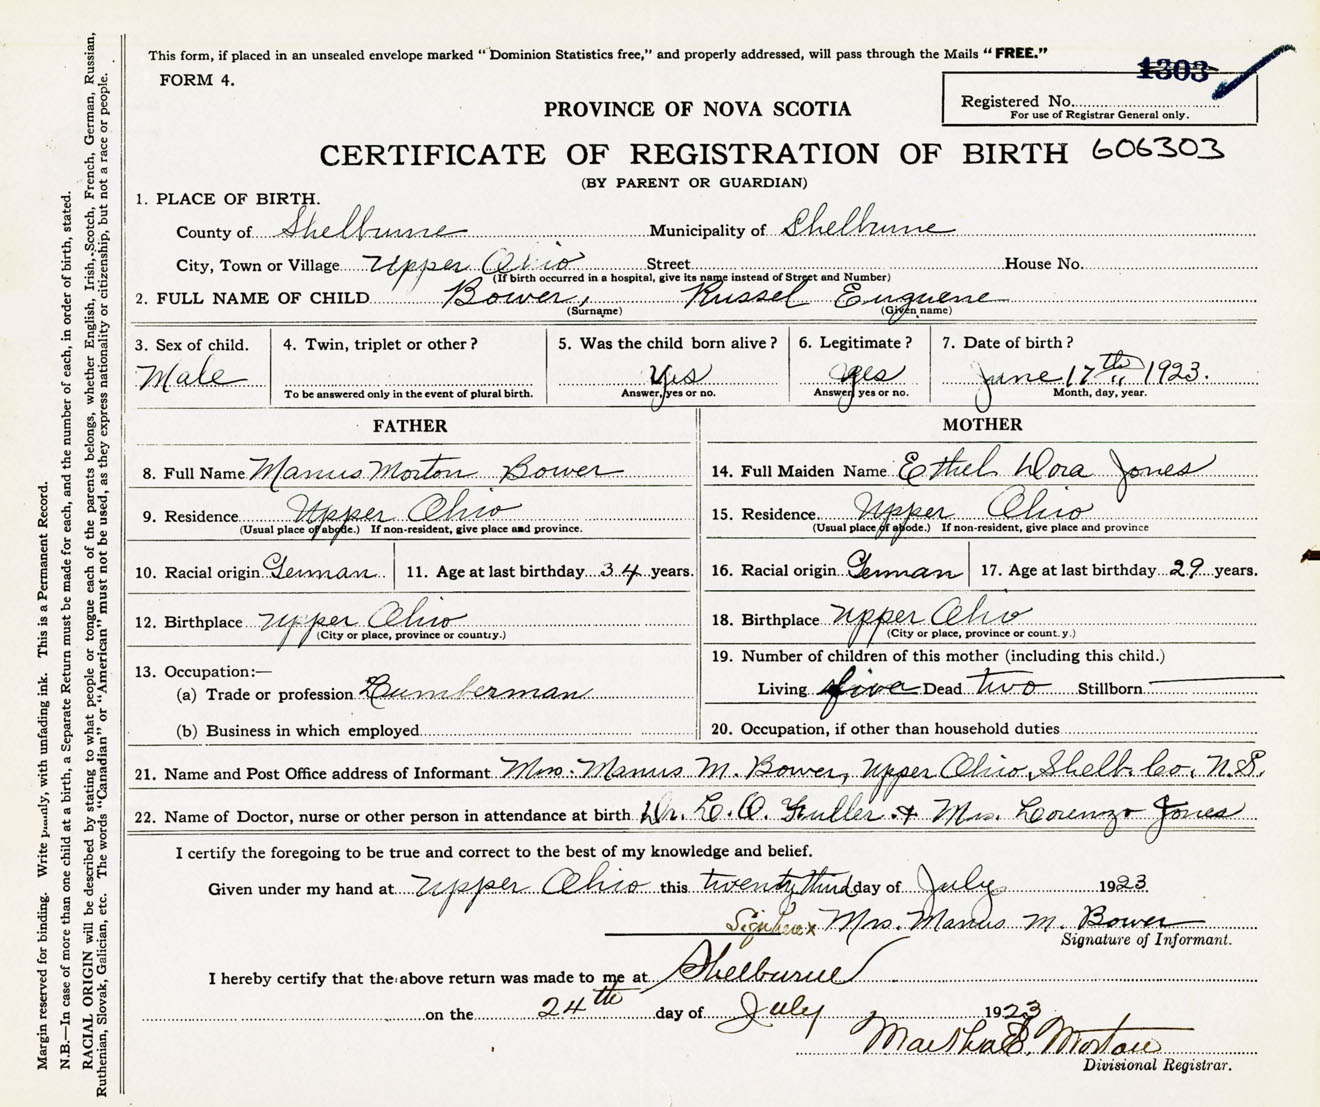 This form, if placed in an unsealed envelope marked "Dominion Statistics free," and properly addressed, will pass through the Mails "FREE."
FORM 4.
1303
Registered No.
For use of Registrar General only.
PROVINCE OF NOVA SCOTIA
CERTIFICATE OF REGISTRATION OF BIRTH 606303
(BY PARENT OR GUARDIAN)
1. PLACE OF BIRTH.
County of Shelburne Municipality of Shelburne
City, Town or Village Upper Ohio Street House No.
(If birth occurred in a hospital, give its name instead of Street and Number)
2. FULL NAME OF CHILD Bower, Russel Euguene
(Surname) (Given name)
3. Sex of child. 4. Twin, triplet or other? 5. Was the child born alive? 6. Legitimate? 7. Date of birth?
Male Yes yes June 17th 1923.
To be answered only in the event of plural birth. Answer, yes or no. Answer yes or no. Month, day, year.
FATHER
8. Full Name Manus Morton Bower
9. Residence Upper Ohio
(Usual place of abode.) If non-resident, give place and province.
10. Racial origin German 11. Age at last birthday 34 years.
12. Birthplace Upper Ohio
(City or place, province or country.)
13. Occupation:—
(a) Trade or profession Lumberman
(b) Business in which employed
MOTHER
14. Full Maiden Name Ethel Dora Jones
15. Residence Upper Ohio
(Usual place of abode.) If non-resident, give place and province
16. Racial origin German 17. Age at last birthday 29 years.
18. Birthplace Upper Ohio
(City or place, province or country.)
19. Number of children of this mother (including this child.)
Living five Dead two Stillborn
20. Occupation, if other than household duties
21. Name and Post Office address of Informant Mrs. Manus M. Bower, Upper Ohio, Shelb. Co. N.S.
22. Name of Doctor, nurse or other person in attendance at birth Dr. L. O. Fuller & Mrs. Lorenzo Jones
I certify the foregoing to be true and correct to the best of my knowledge and belief.
Given under my hand at Upper Ohio this twenty third day of July 1923
x Mrs. Manus M. Bower
Signature of Informant.
I hereby certify that the above return was made to me at Shelburne
on the 24th day of July 1923
Martha E. Morton
Divisional Registrar.
Margin reserved for binding. Write plainly, with unfading ink. This is a Permanent Record.
N.B.—In case of more than one child at a birth, a Separate Return must be made for each, and the number of each, in order of birth, stated.
RACIAL ORIGIN will be described by stating to what people or tongue each of the parents belongs, whether English, Irish, Scotch, French, German, Russian,
Ruthenian, Slovak, Galician, etc. The words "Canadian" or "American" must not be used, as they express nationality or citizenship, but not a race or people.